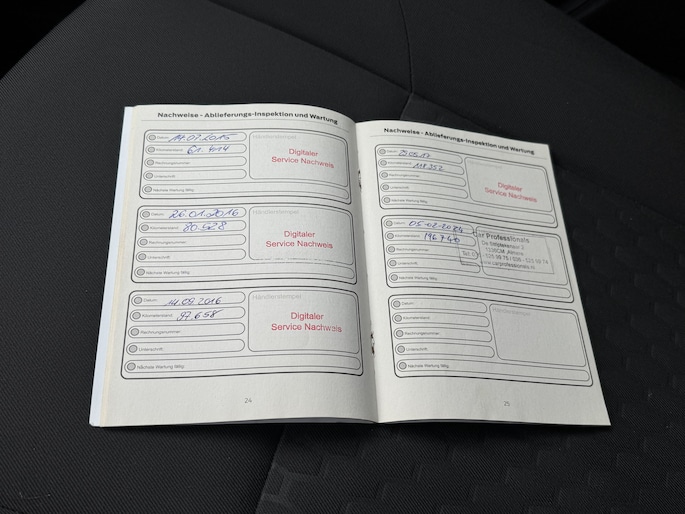 Nachweise - Ablieferungs-Inspektion und Wartung
Datum: 14.07.2015
Händlerstempel
Kilometerstand:
Rechnungsnummer:
Unterschrift:
Nächste Wartung fällig:
Digitaler
Service Nachweis
Datum: 26.01.2016
Händlerstempel
Kilometerstand: 80.528
Rechnungsnummer:
Unterschrift:
Nächste Wartung fällig:
Digitaler
Service Nachweis
Datum: 14.09.2016
Händlerstempel
Kilometerstand: 97.658
Rechnungsnummer:
Unterschrift:
Nächste Wartung fällig:
Digitaler
Service Nachweis
24
Nachweise - Ablieferungs-Inspektion und Wartung
Datum:
Kilometerstand: 118.352
Rechnungsnummer:
Unterschrift:
Nächste Wartung fällig:
Digitaler
Service Nachweis
Datum: 05-02-2024
Kilometerstand: 196740
Rechnungsnummer:
Unterschrift:
Nächste Wartung fällig:
Car Professionals
www.carprofessionals.nl
Datum:
Händlerstempel
Kilometerstand:
Rechnungsnummer:
Unterschrift:
Nächste Wartung fällig:
25